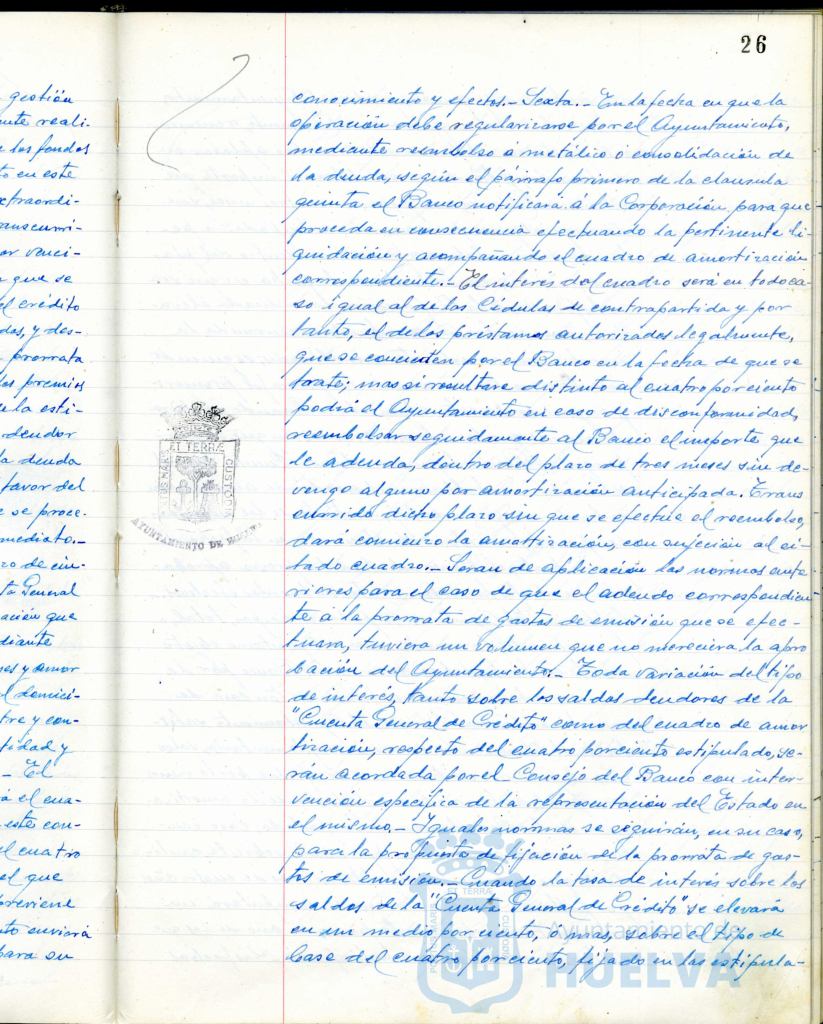 26
gestión
nte reali-
los fondos
to en este
xtraordi-
anscurri-
or venci-
que se
el crédito
das, y des-
prorrata
los premios
la esti-
deudor
la deuda
favor del
e se proce-
mediato.-
zo de cin-
ta General
ación que
diante
ses y amor
l domici-
tre y con-
tidad y
- El
rá el cua-
este con-
el cuatro
el que
previene
to enviará
para su
conocimiento y efectos.- Sexta.- En la fecha en que la
operación debe regularizarse por el Ayuntamiento,
mediante reembolso a metálico ó consolidación de
la deuda, según el párrafo primero de la clausula
quinta el Banco notificará á la Corporación para que
proceda en consecuencia efectuando la pertinente li-
quidación y acompañando el cuadro de amortización
correspondiente.- El interés del cuadro será en todo ca-
so igual al de las Cédulas de contrapartida y por
tanto, el de los préstamos autorizados legalmente,
que se concierten por el Banco en la fecha de que se
trate; mas si resultare distinto al cuatro por ciento
podrá el Ayuntamiento en caso de disconformidad,
reembolsar seguidamente al Banco el importe que
le adeuda, dentro del plazo de tres meses sin de-
vengo alguno por amortización anticipada. Trans
currido dicho plazo sin que se efectue el reembolso,
dará comienzo la amortización, con sujeción al ci-
tado cuadro.- Seran de aplicación las normas ante
riores para el caso de que el adeudo correspondien-
te á la prorrata de gastos de emisión que se efec-
tuara, tuviera un volumen que no mereciera la apro
bación del Ayuntamiento.- Toda variación del tipo
de interés, tanto sobre los saldos deudores de la
"Cuenta General de Crédito" como del cuadro de amor
tización, respecto del cuatro por ciento estipulado, se-
rán acordada por el Consejo del Banco con inter-
vención especifica de la representación del Estado en
el mismo.- Iguales normas se seguirán, en su caso,
para la propuesta de fijación de la prorrata de gas-
tos de emisión.- Cuando la tasa de interés sobre los
saldos de la "Cuenta General de Crédito" se elevará
en un medio por ciento, ó mas, sobre el tipo de
base del cuatro por ciento, fijado en las estipula-
ET TERRÆ
CUSTODIA
AYUNTAMIENTO DE HUELVA
Ayuntamiento de
HUELVA